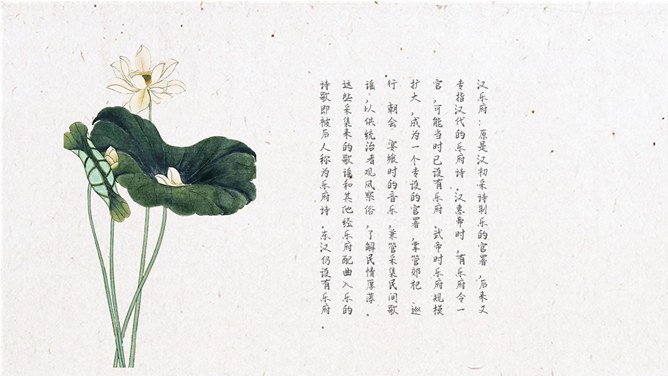 汉乐府:原是汉初采诗制乐的官署,后来又
专指汉代的乐府诗。汉惠帝时,有乐府令一
官,可能当时已设有乐府。武帝时乐府规模
扩大,成为一个专设的官署,掌管郊祀、巡
行、朝会、宴飨时的音乐,兼管采集民间歌
谣,以供统治者观风察俗,了解民情厚薄。
这些采集来的歌谣和其他经乐府配曲入乐的
诗歌即被后人称为乐府诗。东汉仍设有乐府。